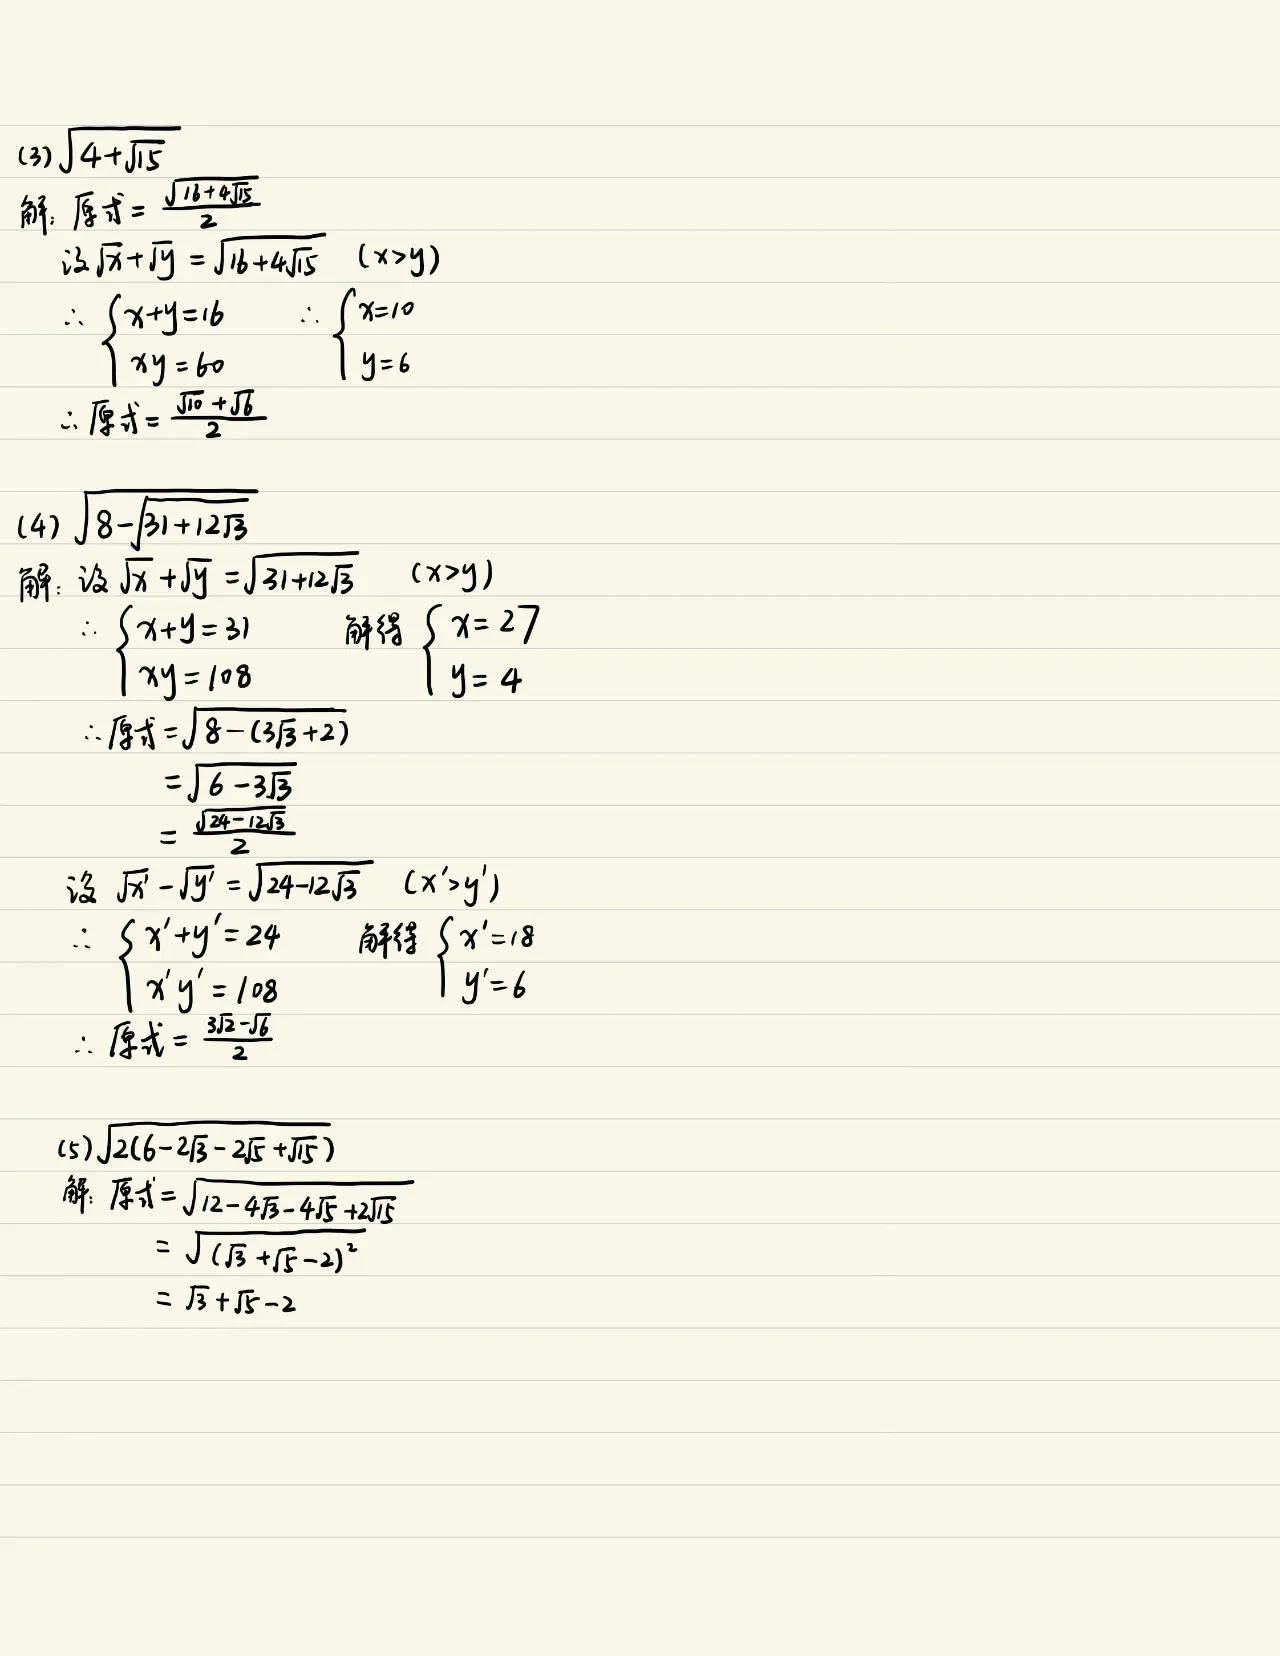 (3) √(4+√15)
解: 原式 = √(16+4√15)/2
设 √x+√y = √(16+4√15) (x>y)
∴ { x+y=16 ∴ { x=10
xy=60 y=6
∴ 原式 = (√10+√6)/2
(4) √(8-√(31+12√3))
解: 设 √x+√y = √(31+12√3) (x>y)
∴ { x+y=31 解得 { x=27
xy=108 y=4
∴ 原式 = √(8-(3√3+2))
= √(6-3√3)
= √(24-12√3)/2
设 √x′-√y′ = √(24-12√3) (x′>y′)
∴ { x′+y′=24 解得 { x′=18
x′y′=108 y′=6
∴ 原式 = (3√2-√6)/2
(5) √(2(6-2√3-2√5+√15))
解: 原式 = √(12-4√3-4√5+2√15)
= √((√3+√5-2)²)
= √3+√5-2